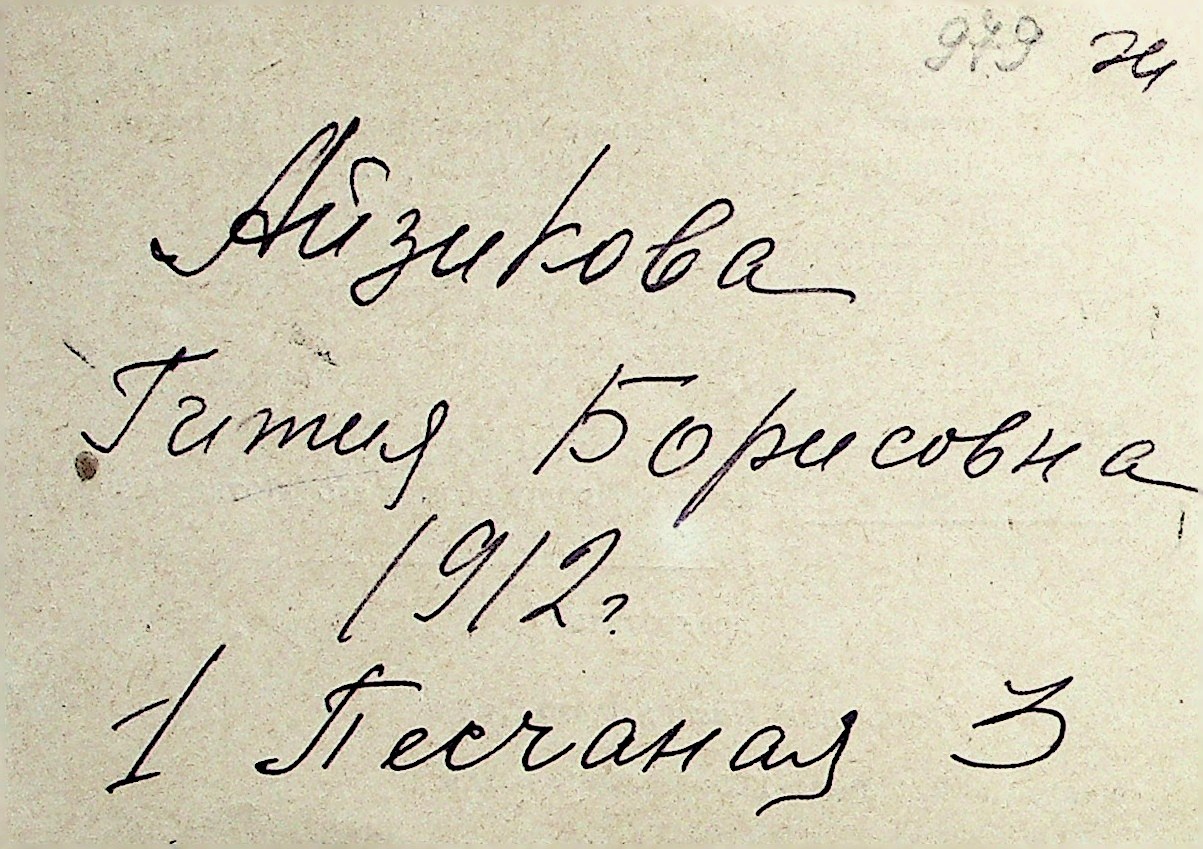 979 ж
Айзикова
Гитя Борисовна
1912г
1 Песчаная 3